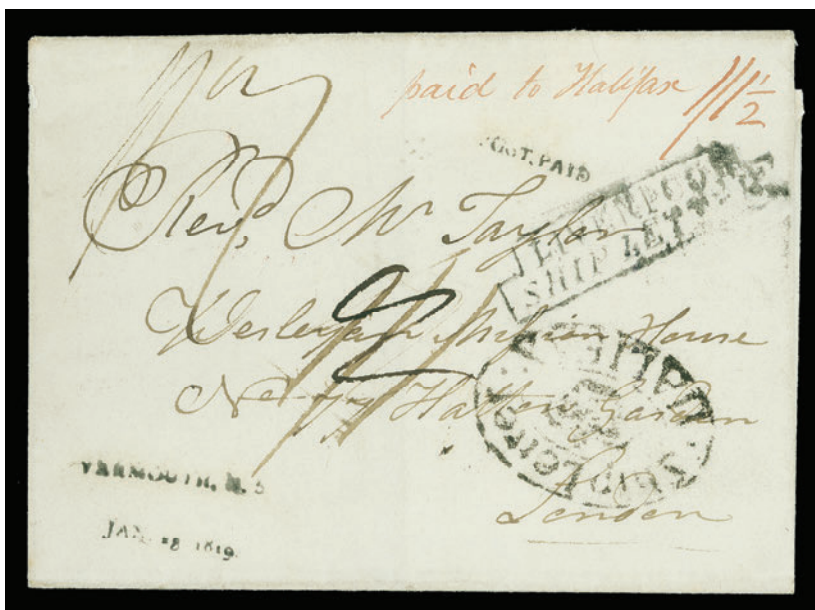 paid to Halifax 1/1 1/2
POST. PAID
LIVERPOOL
SHIP LETTER
Revd. Mr Taylor
Wesleyan Mission House
No 77 Hatton Garden
London
HALIFAX
Ship Letter
YARMOUTH, N. S
JAN. 28 1819.